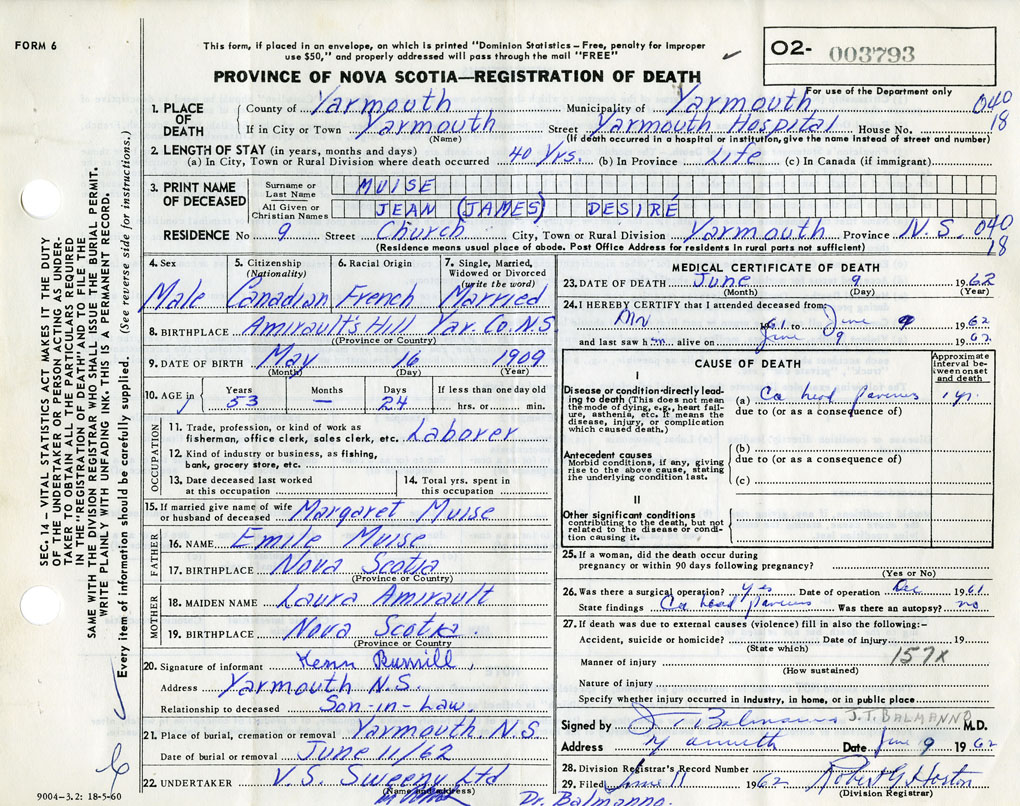 FORM 6
This form, if placed in an envelope, on which is printed "Dominion Statistics – Free, penalty for improper
use $50," and properly addressed will pass through the mail "FREE"
PROVINCE OF NOVA SCOTIA—REGISTRATION OF DEATH
O2- 003793
For use of the Department only
1. PLACE OF DEATH
County of Yarmouth Municipality of Yarmouth 040
If in City or Town Yarmouth (Name) Street Yarmouth Hospital House No. 18
(If death occurred in a hospital or institution, give the name instead of street and number)
2. LENGTH OF STAY (in years, months and days)
(a) In City, Town or Rural Division where death occurred 40 Yrs. (b) In Province Life (c) In Canada (if immigrant)
3. PRINT NAME OF DECEASED
Surname or Last Name MUISE
All Given or Christian Names JEAN (JAMES) DESIRÉ
RESIDENCE No 9 Street Church City, Town or Rural Division Yarmouth Province N.S. 040
18
(Residence means usual place of abode. Post Office Address for residents in rural parts not sufficient)
4. Sex Male
5. Citizenship (Nationality) Canadian
6. Racial Origin French
7. Single, Married, Widowed or Divorced (write the word) Married
8. BIRTHPLACE Amirault's Hill Yar. Co. N.S
(Province or Country)
9. DATE OF BIRTH May 16 1909
(Month) (Day) (Year)
10. AGE in Years 53 Months — Days 24 If less than one day old hrs. or min.
OCCUPATION
11. Trade, profession, or kind of work as
fisherman, office clerk, sales clerk, etc. Laborer
12. Kind of industry or business, as fishing,
bank, grocery store, etc.
13. Date deceased last worked
at this occupation
14. Total yrs. spent in
this occupation
15. If married give name of wife
or husband of deceased Margaret Muise
FATHER
16. NAME Emile Muise
17. BIRTHPLACE Nova Scotia
(Province or Country)
MOTHER
18. MAIDEN NAME Laura Amirault
19. BIRTHPLACE Nova Scotia.
(Province or Country
20. Signature of informant
Address Yarmouth N.S.
Relationship to deceased Son-in-Law.
21. Place of burial, cremation or removal Yarmouth, N.S
Date of burial or removal June 11/62
22. UNDERTAKER V.S. Sweeny Ltd
(Name and address)
9004-3.2: 18-5-60
MEDICAL CERTIFICATE OF DEATH
23. DATE OF DEATH June 9 1962
(Month) (Day) (Year)
24. I HEREBY CERTIFY that I attended deceased from
1961 to June 9 1962
and last saw him alive on June 9 1962
CAUSE OF DEATH
Approximate interval between onset and death
I
Disease or condition directly leading to death (This does not mean
the mode of dying, e.g., heart failure, asthenia, etc. It means the
disease, injury, or complication
which caused death.)
(a) Ca head pancreas 1 yr.
due to (or as a consequence of)
Antecedent causes
Morbid conditions, if any, giving
rise to the above cause, stating
the underlying condition last.
(b)
due to (or as a consequence of)
(c)
II
Other significant conditions
contributing to the death, but not
related to the disease or condition causing it.
25. If a woman, did the death occur during
pregnancy or within 90 days following pregnancy?
(Yes or No)
26. Was there a surgical operation? yes Date of operation Dec 1961
State findings Ca head pancreas Was there an autopsy? no
27. If death was due to external causes (violence) fill in also the following:–
Accident, suicide or homicide? Date of injury 19
(State which)
Manner of injury 157X
(How sustained)
Nature of injury
Specify whether injury occurred in industry, in home, or in public place
Signed by J. T. Balmanno J.T. BALMANNO M.D.
Address Yarmouth Date June 9 1962
28. Division Registrar's Record Number
29. Filed June 11 1962 Robert G Hoston
(Division Registrar)
Dr. Balmanno.
SEC. 14 – VITAL STATISTICS ACT MAKES IT THE DUTY
OF THE UNDERTAKER OR PERSON ACTING AS UNDER-
TAKER TO OBTAIN ALL THE PARTICULARS REQUIRED
IN THE "REGISTRATION OF DEATH" AND TO FILE THE
SAME WITH THE DIVISION REGISTRAR WHO SHALL ISSUE THE BURIAL PERMIT.
WRITE PLAINLY WITH UNFADING INK. THIS IS A PERMANENT RECORD.
Every item of information should be carefully supplied. (See reverse side for instructions.)